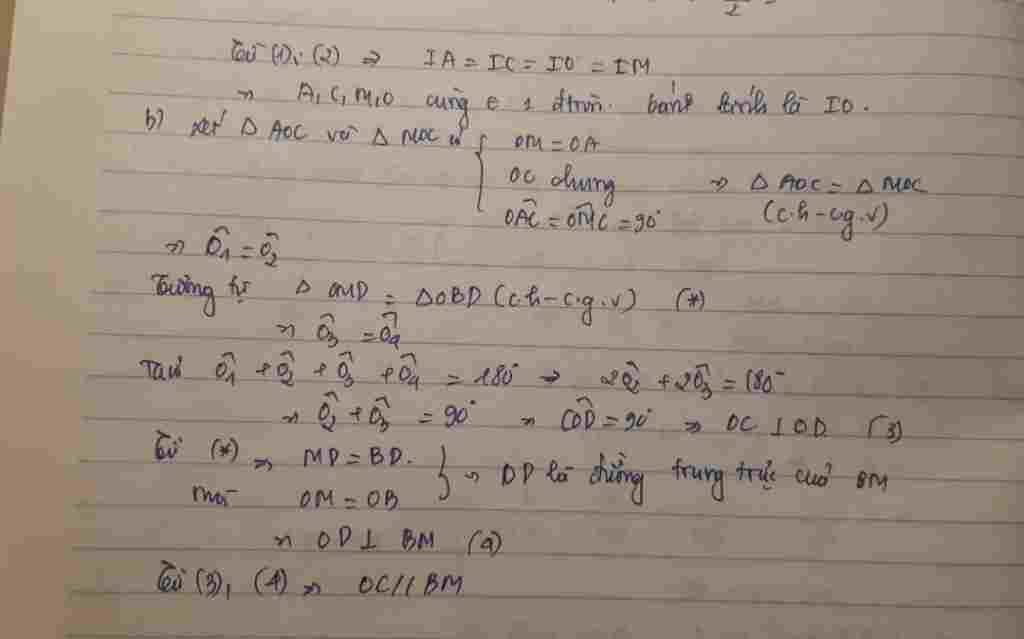 2
Từ (1), (2) => IA = IC = IO = IM
=> A, C, M, O cùng ∈ 1 đtròn bán kính là IO.
b) xét Δ AOC và Δ MOC có { OM = OA
OC chung => Δ AOC = Δ MOC
OÂC = OM̂C = 90° (c.h - cg.v)
=> Ô1 = Ô2
Tương tự Δ OMD = Δ OBD (c.h - c.g.v) (*)
=> Ô3 = Ô4
Ta có Ô1 + Ô2 + Ô3 + Ô4 = 180° => 2Ô2 + 2Ô3 = 180°
=> Ô2 + Ô3 = 90° => CÔD = 90° => OC ⊥ OD (3)
Từ (*) => MD = BD. } => OD là đường trung trực của BM
mà OM = OB
=> OD ⊥ BM (4)
Từ (3), (4) => OC // BM